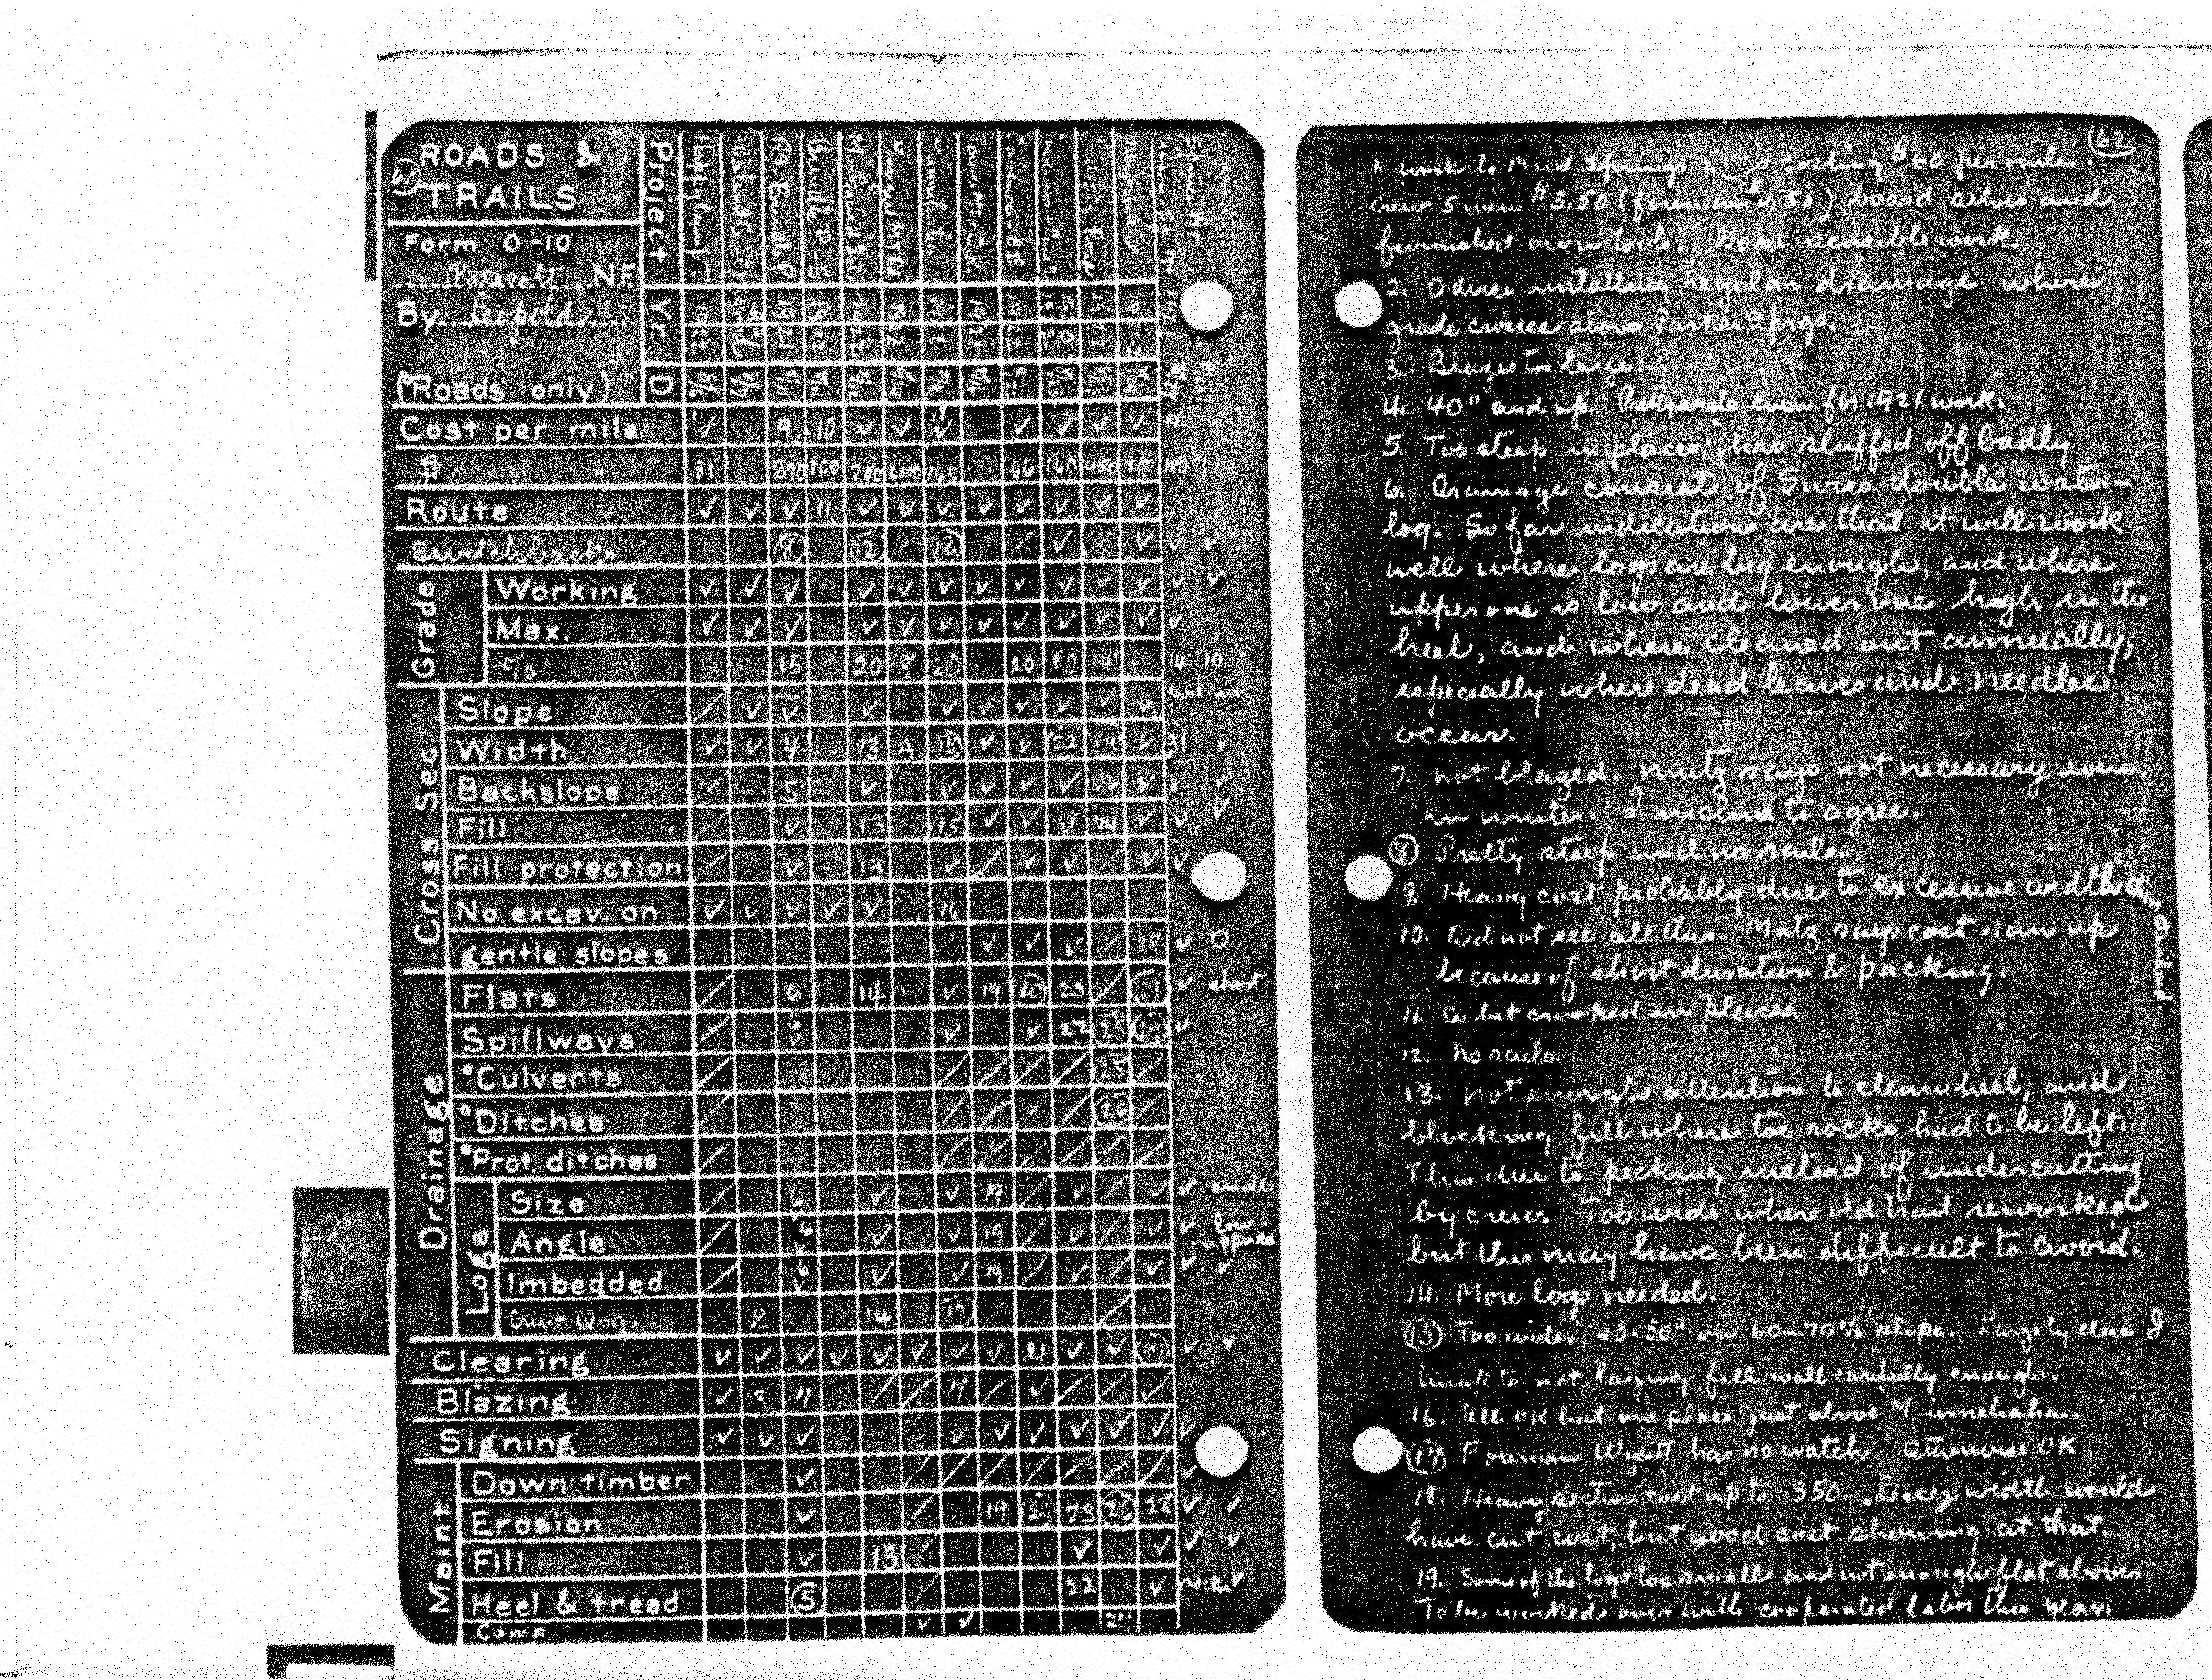 61
ROADS &
TRAILS
Form O-10
Prescott N.F.
By Leopold
(°Roads only)
Project
Yr.
D
Happy Camp T
RS - Brindle P
Brindle P. - S
Spruce Mt
1922 1921 1922 1922 1922 1922 1921 1922
8/6 8/7 8/11 8/11 8/12
Cost per mile ✓ 9 10 ✓ ✓ ✓ ✓ ✓ ✓ ✓ 32
$ " " 31 270 100 200 6000 165 66 160 450 200 180 ?
Route ✓ ✓ ✓ 11 ✓ ✓ ✓ ✓ ✓ ✓ ✓ ✓
Switchbacks 8 12 / 12 / ✓ / ✓ ✓ ✓
Grade
Working ✓ ✓ ✓ ✓ ✓ ✓ ✓ ✓ ✓ ✓ ✓ ✓ ✓
Max. ✓ ✓ ✓ ✓ ✓ ✓ ✓ ✓ ✓ ✓ ✓ ✓
% 15 20 8 20 20 20 14 14 10
Cross Sec.
Slope / ✓ ✓ ✓ ✓ ✓ ✓ ✓ ✓ ✓
Width ✓ ✓ 4 13 A 15 ✓ ✓ 22 24 ✓ 31 ✓
Backslope / 5 ✓ ✓ ✓ ✓ ✓ 26 ✓ ✓ ✓
Fill / ✓ 13 15 ✓ ✓ ✓ 24 ✓ ✓ ✓
Fill protection / ✓ 13 ✓ / ✓ ✓ / ✓ ✓
No excav. on ✓ ✓ ✓ ✓ ✓ 16
gentle slopes ✓ ✓ ✓ / 28 ✓ O
Drainage
Flats / 6 14 ✓ 19 20 23 / 29 ✓ short
Spillways / 6 ✓ ✓ ✓ 22 25 29 ✓
°Culverts / / / / / 25 /
°Ditches / / / / / 26 /
°Prot. ditches / / / / / / /
Logs
Size / 6 ✓ ✓ 19 / ✓ / ✓ ✓ small
Angle / 6 ✓ ✓ ✓ 19 / ✓ / ✓ ✓ low
Imbedded / 6 ✓ ✓ ✓ 19 / ✓ / ✓ ✓ ✓
Crew Org. 2 14 17 /
Clearing ✓ ✓ ✓ ✓ ✓ ✓ ✓ ✓ 21 ✓ ✓ 30 ✓ ✓
Blazing ✓ 3 7 / / 7 / ✓ / / /
Signing ✓ ✓ ✓ ✓ ✓ ✓ ✓ ✓ ✓ ✓
Maint.
Down timber ✓ / / / / / / / ✓
Erosion ✓ / 19 20 23 26 28 ✓ ✓
Fill ✓ 13 / ✓ ✓ ✓ ✓
Heel & tread 5 / 22 ✓ rocks ✓
Camp ✓ ✓ 27
62
1. Work to Mud Springs costing $60 per mile.
Crew 5 men $3.50 (foreman $4.50) board selves and
furnished own tools. Good sensible work.
2. Advise installing regular drainage where
grade crosses above Parker Sprgs.
3. Blazes too large.
4. 40" and up. Pretty wide even for 1921 work.
5. Too steep in places; has sluffed off badly
6. Drainage consists of Swiss double water-
log. So far indications are that it will work
well where logs are big enough, and where
upper one is low and lower one high in the
heel, and where cleaned out annually,
especially where dead leaves and needles
occur.
7. Not blazed. Mutz says not necessary even
in winter. I incline to agree.
8 Pretty steep and no rails.
9. Heavy cost probably due to excessive width
10. Did not see all this. Mutz says cost ran up
because of short duration & packing.
11. but crooked in places.
12. No rails.
13. Not enough attention to clean heel, and
blocking fill where toe rocks had to be left.
This due to pecking instead of undercutting
by crew. Too wide where old trail reworked
but this may have been difficult to avoid.
14. More logs needed.
15 Too wide. 40-50" on 60-70% slope. Largely due I
think to not laying fill wall carefully enough.
16. All OK but one place just above Minnehaha.
17 Foreman Wyatt has no watch. Otherwise OK
18. Heavy section cost up to 350. Lesser width would
have cut cost, but good cost showing at that.
19. Some of the logs too small and not enough flat above.
To be worked over with cooperated labor this year.